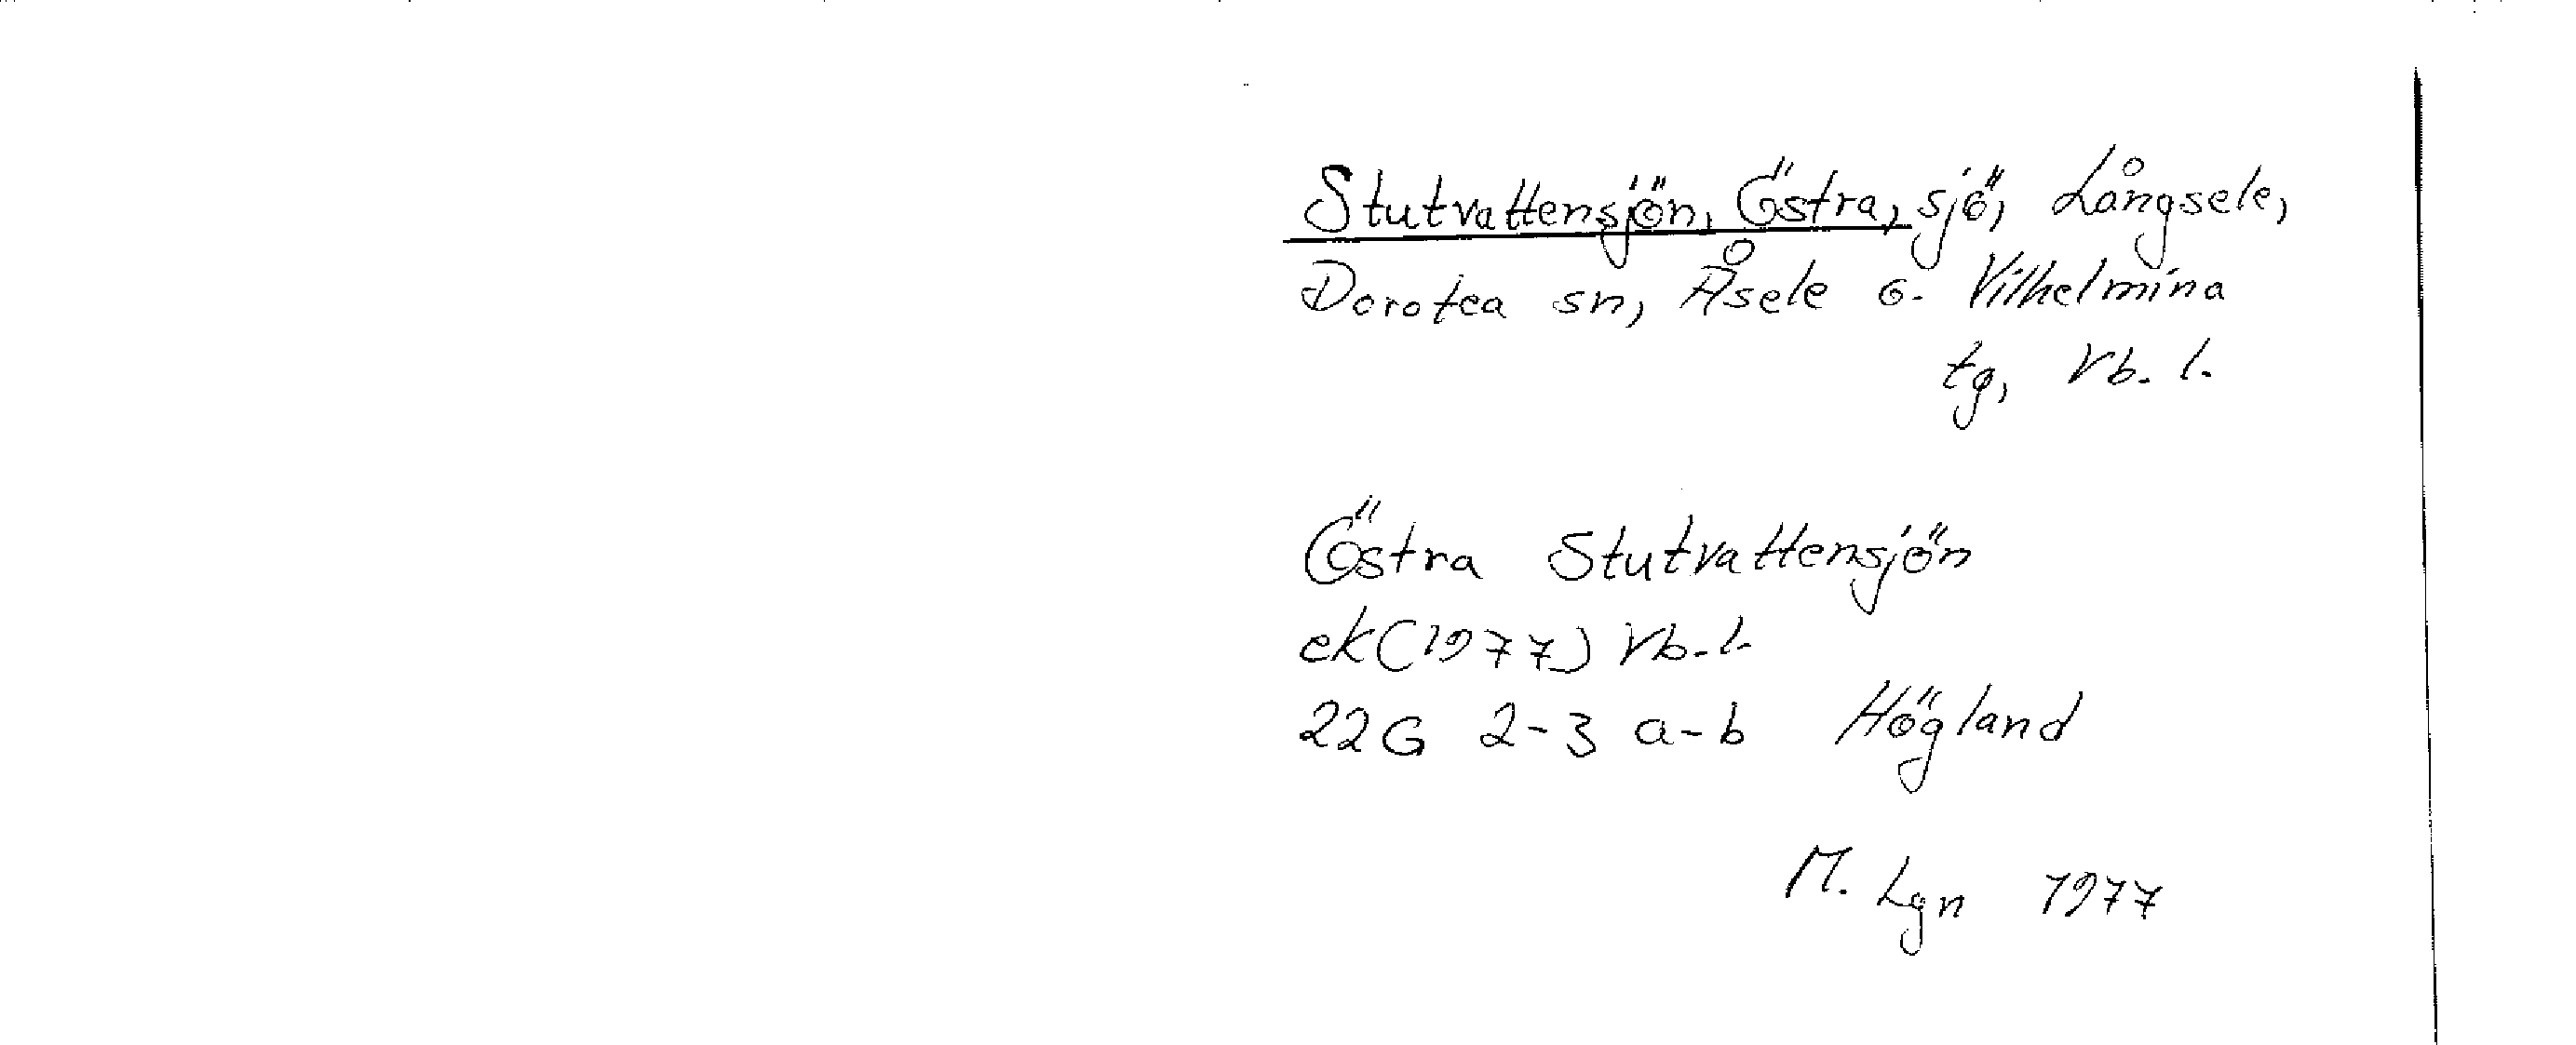 Stutvattensjön, Östra, sjö, Långsele,
Dorotea sn, Åsele o. Vilhelmina
tg, Vb. l.
Östra Stutvattensjön
ek (1977) Vb. l.
22G 2-3 a-b Högland
M. Lgn 1977